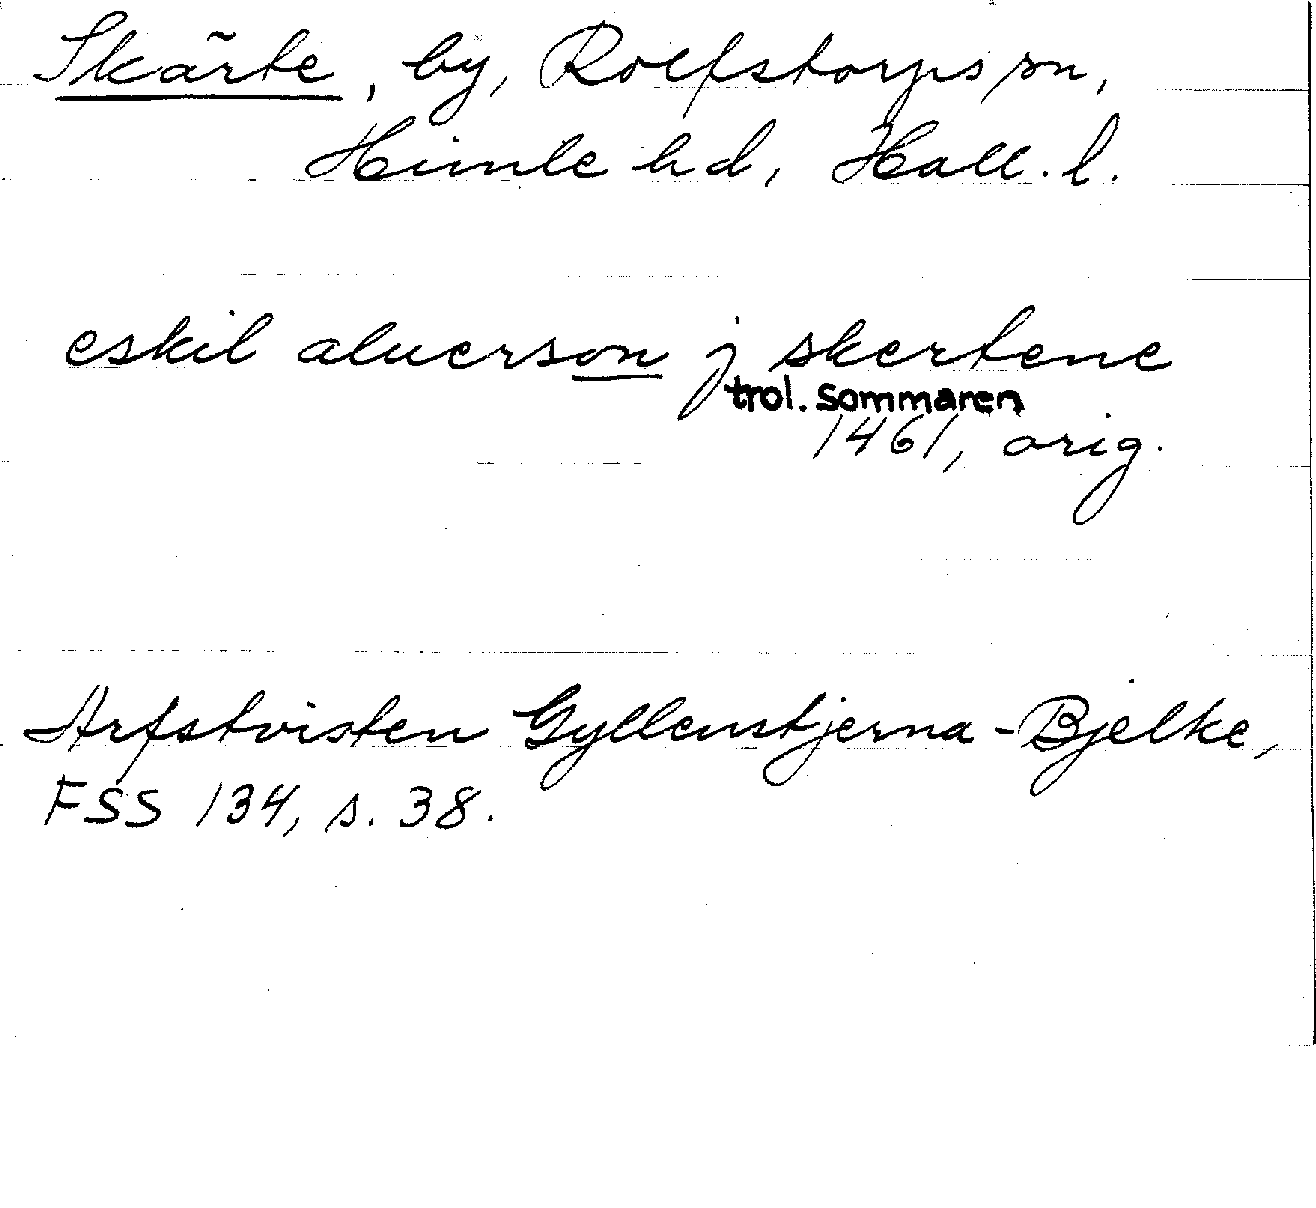 Skärte, by, Rolfstorps sn,
Himle hd, Hall. l.
eskil aluerson j skertene
trol. sommaren
1461, orig.
Arfstvisten Gyllenstjerna-Bjelke,
FSS 134, s. 38.